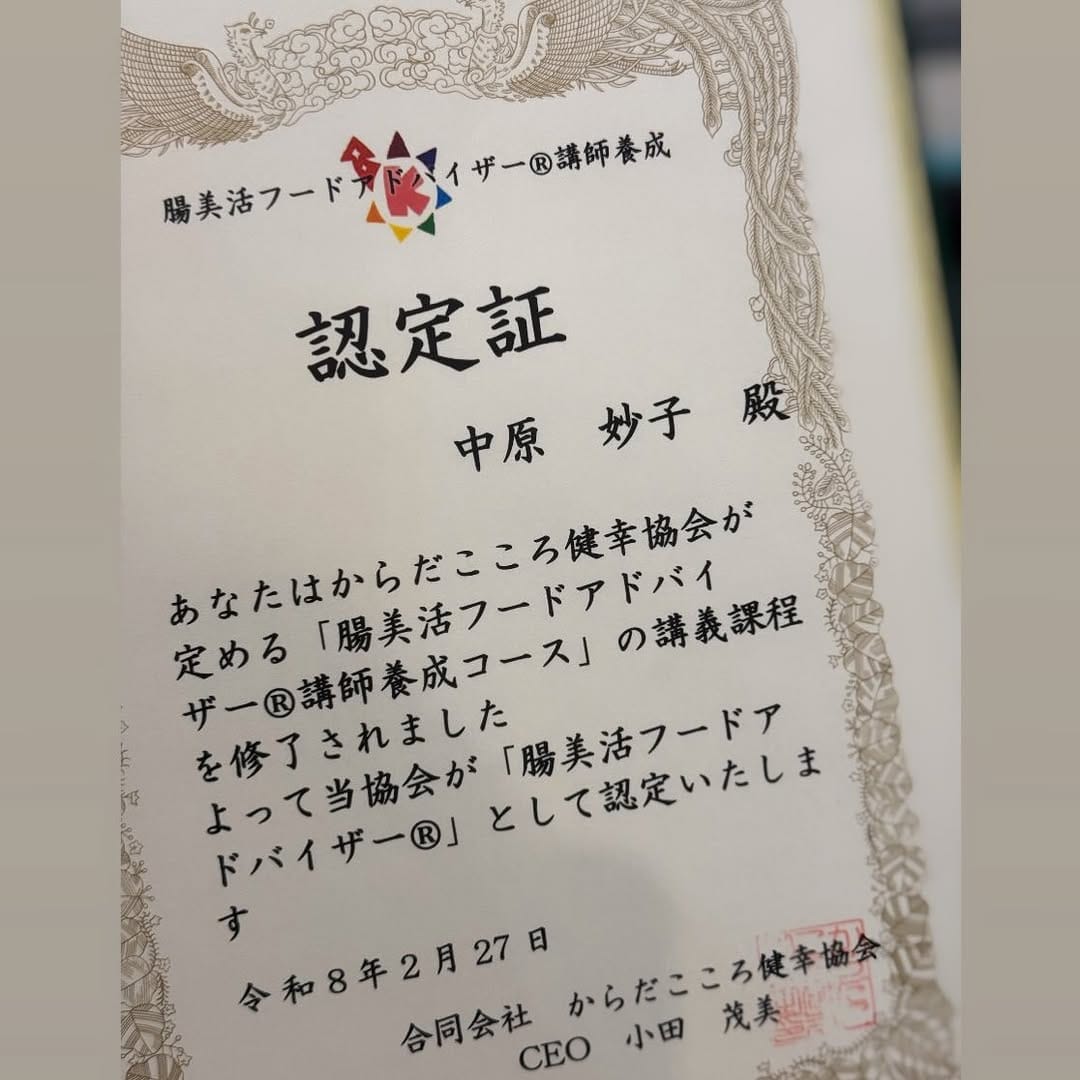 腸美活フードアドバイザー®講師養成
認定証
中原 妙子 殿
あなたはからだこころ健幸協会が
定める「腸美活フードアドバイ
ザー®講師養成コース」の講義課程
を修了されました
よって当協会が「腸美活フードア
ドバイザー®」として認定いたしま
す
令和8年2月27日
合同会社 からだこころ健幸協会
CEO 小田 茂美